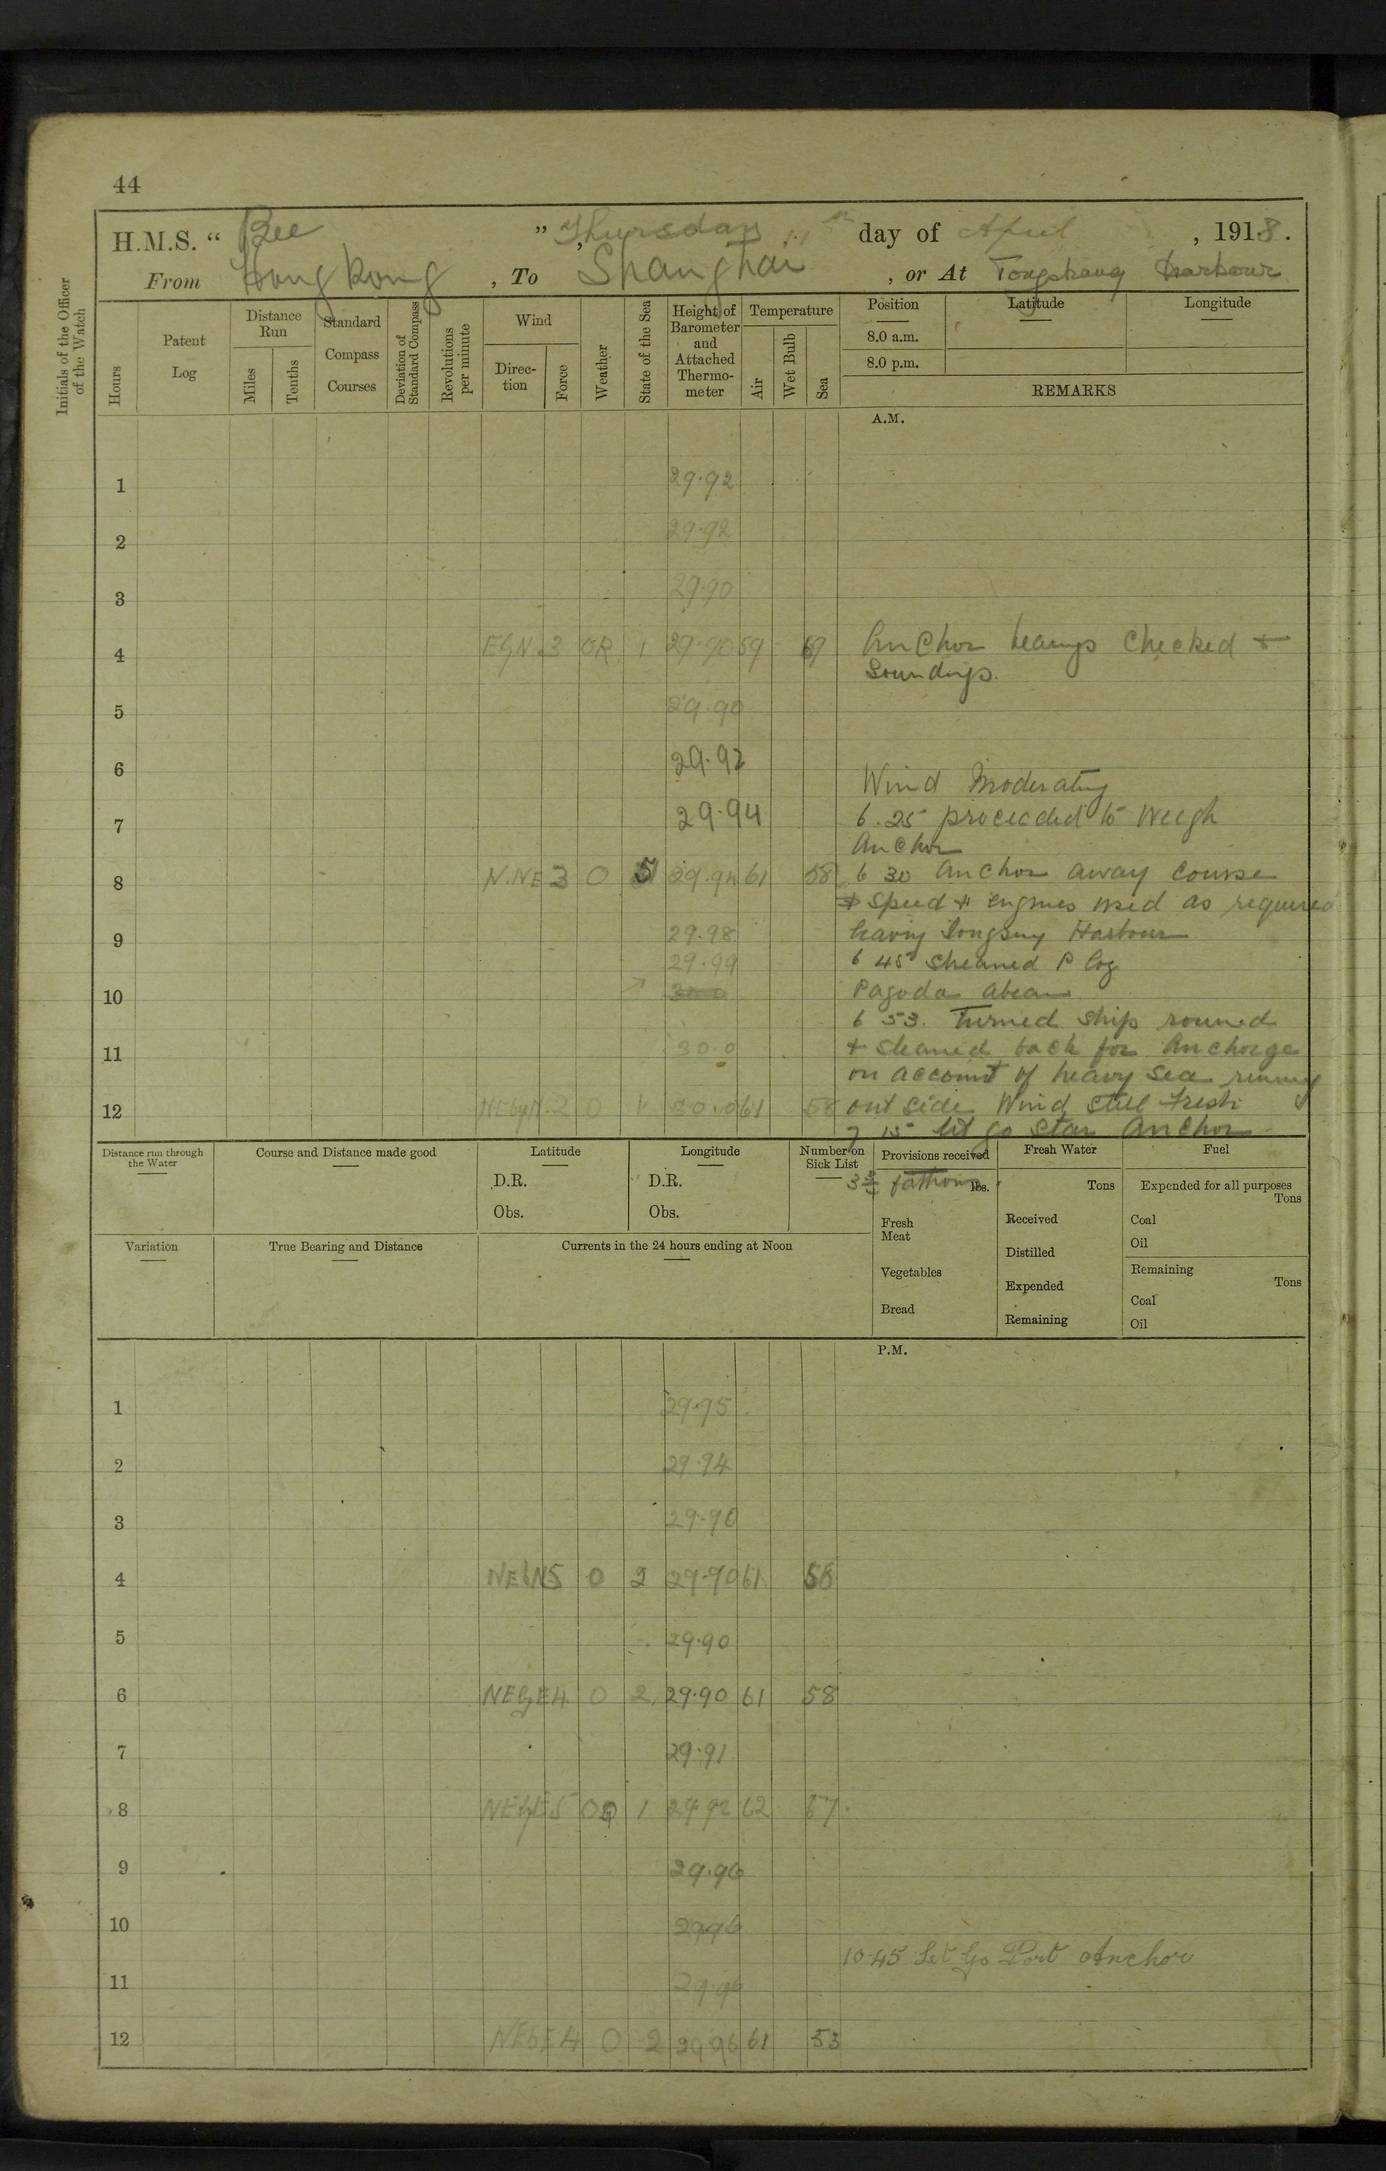 44
H.M.S. " Bee " Thursday 11th day of April, 1918.
From Hong Kong, To Shanghai, or At Tongshang Harbour
Initials of the Officer of the Watch
Hours
Patent Log
Distance Run
Miles
Tenths
Standard Compass Courses
Deviation of Standard Compass
Revolutions per minute
Wind
Direction
Force
Weather
State of the Sea
Height of Barometer and Attached Thermometer
Temperature
Air
Wet Bulb
Sea
Position
Latitude
Longitude
8.0 a.m.
8.0 p.m.
REMARKS
A.M.
1 29.92
2 29.92
3 29.90
4 EbyN 3 OR 1 29.90 59 Anchor bearings Checked +
Soundings.
5 29.90
6 29.92
Wind Moderating
7 29.94 6.25 proceeded to weigh
Anchor
8 N.NE 3 O 29.94 61 58 6 30 Anchor away Course
+ Speed + engines used as required
9 29.98 leaving Harbour
29.99 6 45 Streamed P Log
10 Pagoda abeam
6 53. Turned ship round
11 30.0 + steamed back for Anchorage
on account of heavy Sea running
12 NEbyN 2 O 1 30.0 61 58 out side Wind still Fresh
7 15 let go Star Anchor
3 fathoms
Distance run through the Water
Course and Distance made good
Latitude
D.R.
Obs.
Longitude
D.R.
Obs.
Number on Sick List
Provisions received
lbs.
Fresh Meat
Vegetables
Bread
Fresh Water
Tons
Received
Distilled
Expended
Remaining
Fuel
Expended for all purposes
Tons
Coal
Oil
Remaining
Tons
Coal
Oil
Variation
True Bearing and Distance
Currents in the 24 hours ending at Noon
P.M.
1 29.95
2 29.94
3 29.90
4 NEbN 5 O 2 29.90 61 58
5 29.90
6 NEbyE 4 O 2 29.90 61 58
7 29.91
8 NEbyE 5 1 29.92 62 57
9 29.96
10 29.96
10.45 Let Go Port Anchor
11 29.96
12 NEbE 4 O 2 29.96 61 53